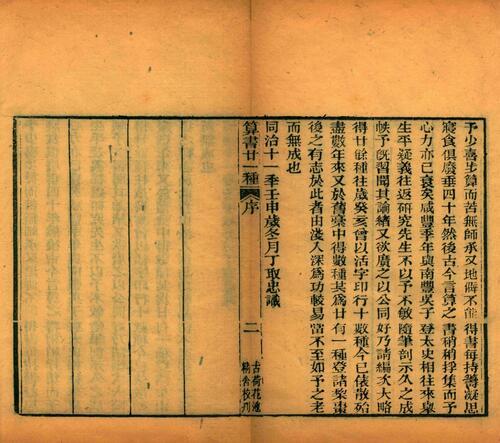 予少喜步算而苦無師承又地僻不能得書每持籌凝思
寢食俱廢垂四十年然後古今言算之書稍稍捊集而予
心力亦已衰矣咸豐季年與南豐吳子登太史相往來舉
生平疑義往返研究先生不以予不敏隨筆剖示久之成
帙予旣習聞其論緒又欲廣之以公同好乃請編次大略
得廿餘種往歲癸亥曾以活字印行十數種今已俵散殆
盡數年來又於舊稾中得數種共爲廿有一種登諸棃棗
後之有志於此者由淺入深爲功較易當不至如予之老
而無成也
同治十一年壬申歲冬月丁取忠識
算書廿一種
序
二
古荷花池
精舍校刋